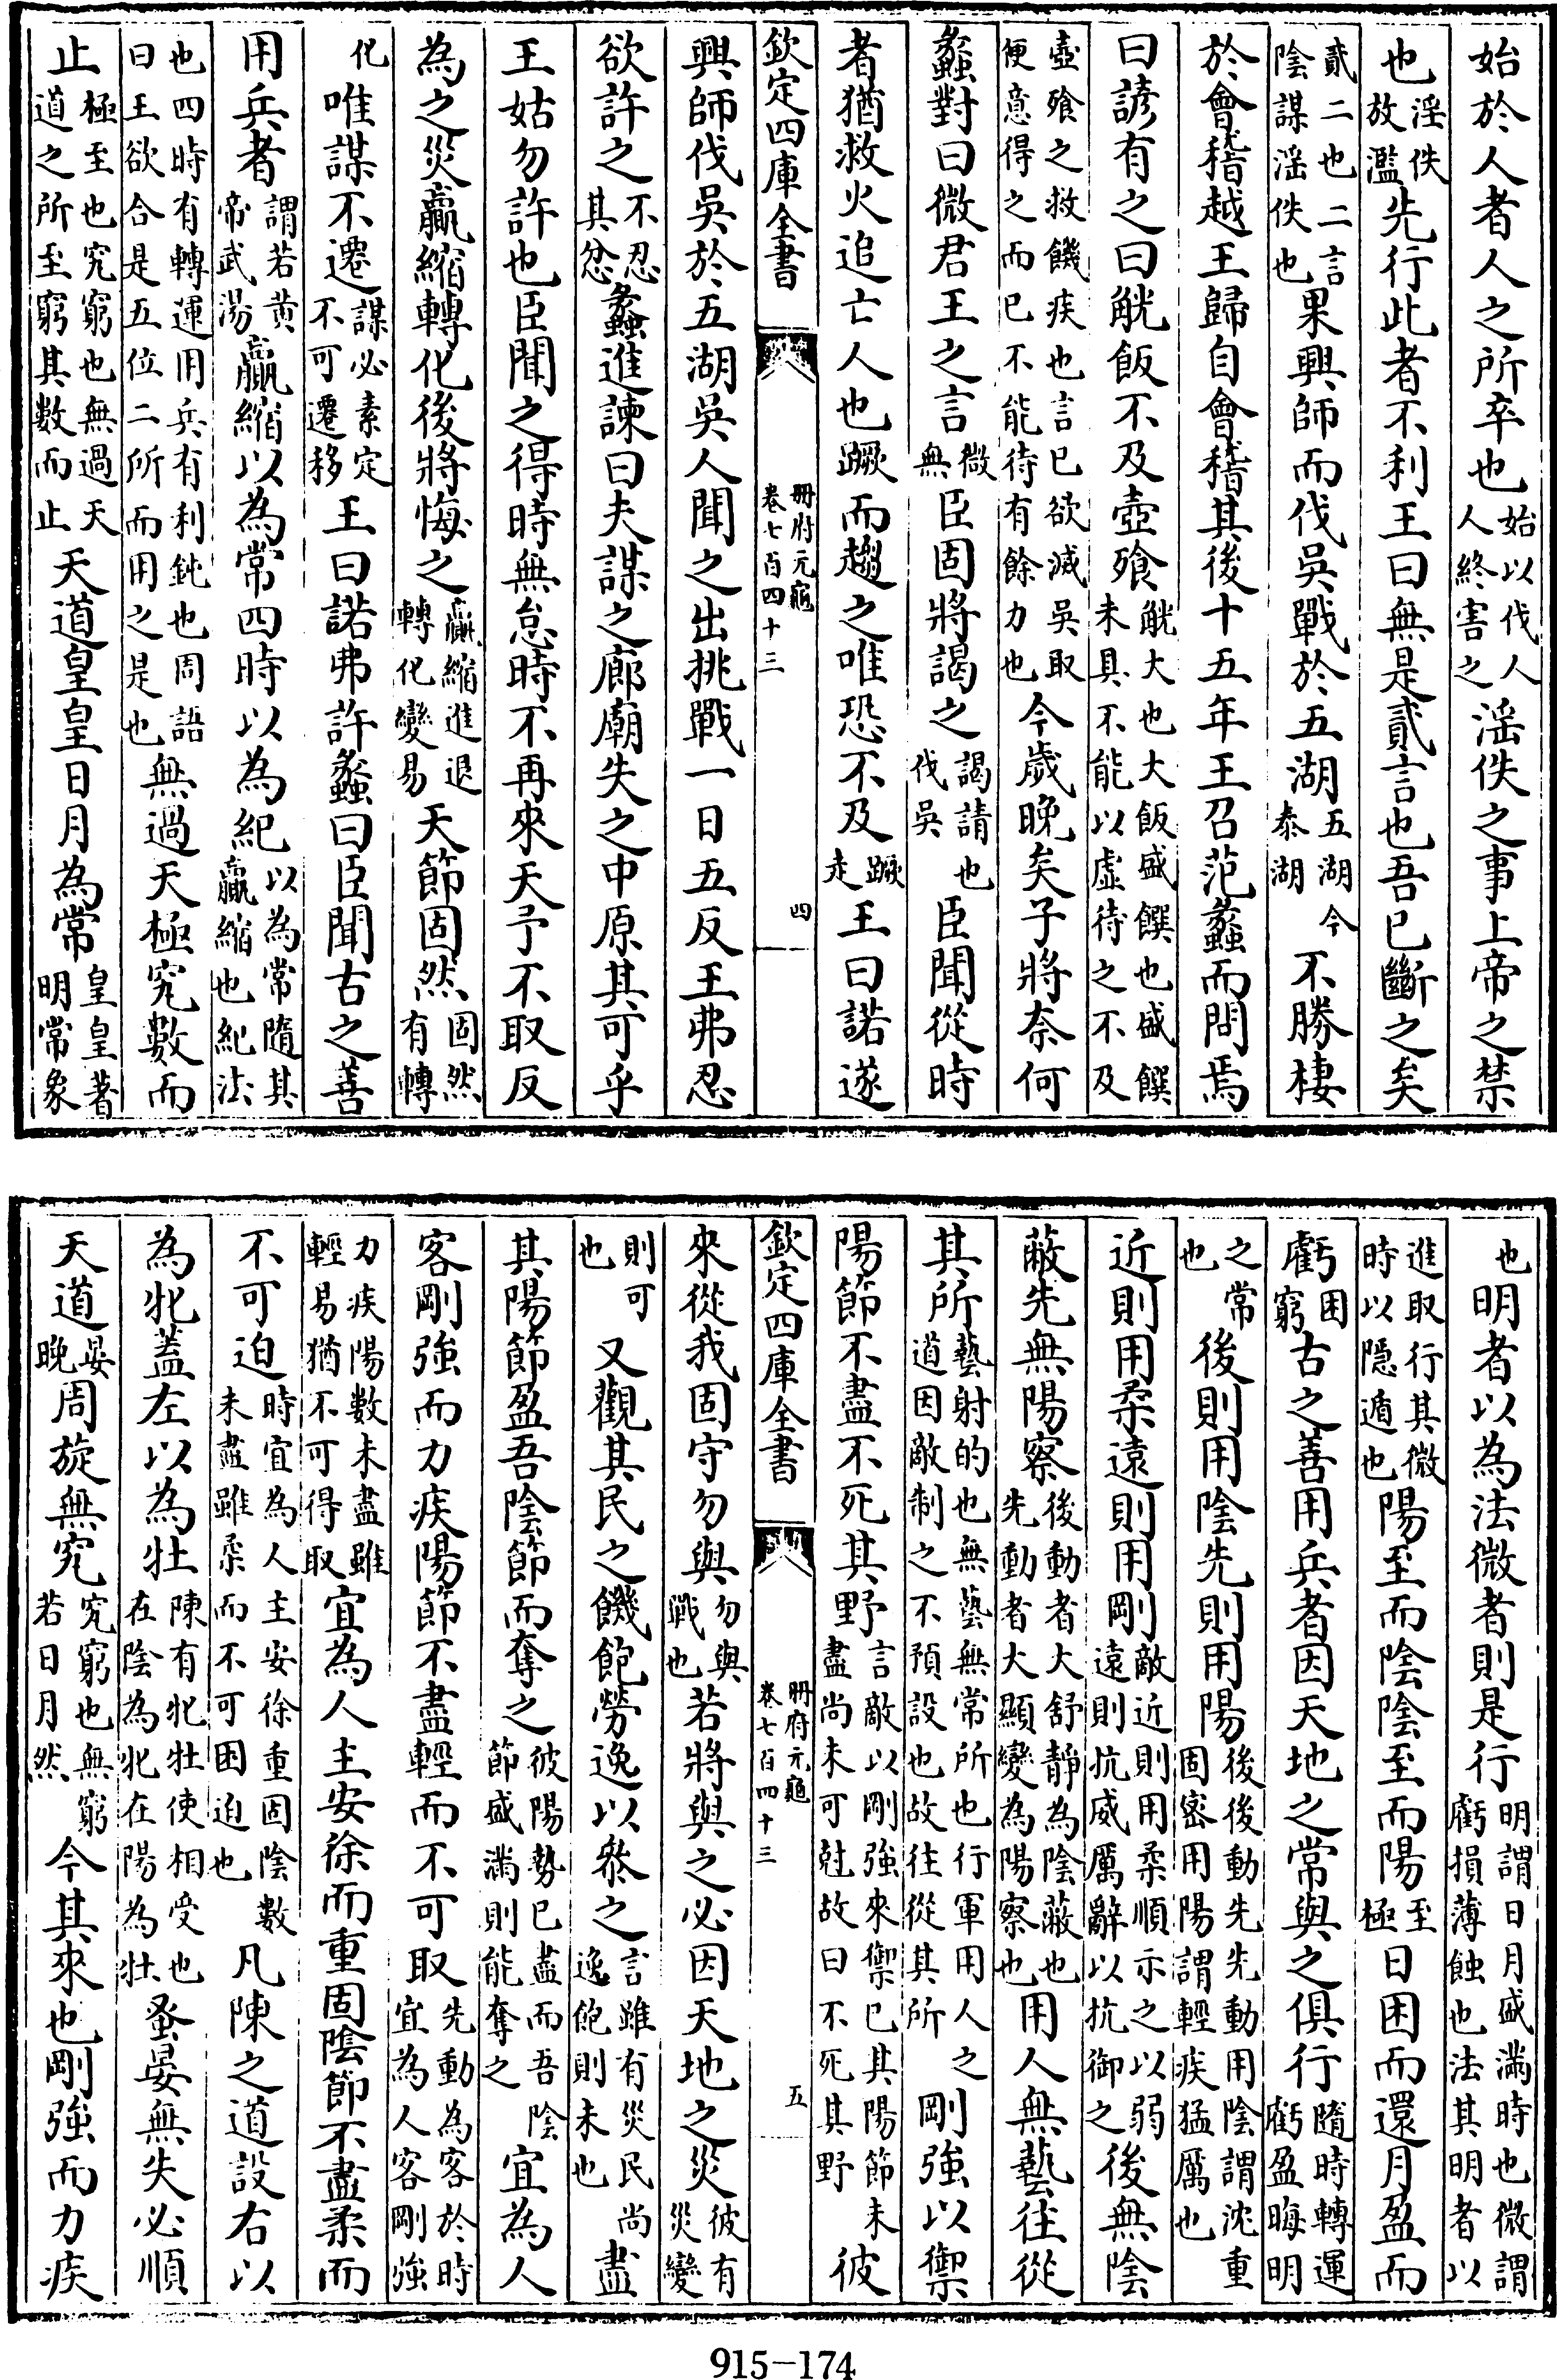 始於人者人之所卒也始以伐人人終害之淫佚之事上帝之禁
也淫佚放濫先行此者不利王曰無是貳言也吾已斷之矣
貳二也二言陰謀淫佚也果興師而伐吳戰於五湖五湖今泰湖不勝棲
於會稽越王歸自會稽其後十五年王召范蠡而問焉
曰諺有之曰觥飯不及壺飱觥大也大飯盛饌也盛饌未具不能以虛待之不及
壺飱之救饑疾也言已欲滅吳取便意得之而已不能待有餘力也今歲晚矣子將奈何
蠡對曰微君王之言微無臣固將謁之謁請也伐吳臣聞從時
者猶救火追亡人也蹶而趨之唯恐不及蹶走王曰諾遂
欽定四庫全書 冊府元龜卷七百四十三 四
興師伐吳於五湖吳人聞之出挑戰一日五反王弗忍
欲許之不忍其忿蠡進諫曰夫謀之廊廟失之中原其可乎
王姑勿許也臣聞之得時無怠時不再來天予不取反
為之災贏縮轉化後將悔之贏縮進退轉化變易天節固然固然有轉
化唯謀不遷謀必素定不可遷移王曰諾弗許蠡曰臣聞古之善
用兵者謂若黄帝武湯贏縮以為常四時以為紀以為常隨其贏縮也紀法
也四時有轉運用兵有利鈍也周語曰王欲合是五位二所而用之是也無過天極究數而
止極至也究窮也無過天道之所至窮其數而止天道皇皇日月為常皇皇著明常象
也明者以為法微者則是行明謂日月盛滿時也微謂虧損薄蝕也法其明者以
進取行其微時以隱遁也陽至而陰陰至而陽至極日困而還月盈而
虧困窮古之善用兵者因天地之常與之俱行隨時轉運虧盈晦明
之常也後則用陰先則用陽後後動先先動用陰謂沈重固密用陽謂輕疾猛厲也
近則用柔遠則用剛敵近則用柔順示之以弱遠則抗威厲辭以抗御之後無陰
蔽先無陽察後動者大舒靜為陰蔽也先動者大顯變為陽察也用人無藝往從
其所藝射的也無藝無常所也行軍用人之道因敵制之不預設也故往從其所剛強以禦
陽節不盡不死其野言敵以剛強來禦已其陽節未盡尚未可尅故曰不死其野彼
欽定四庫全書 冊府元龜卷七百四十三 五
來從我固守勿與勿與戰也若將與之必因天地之災彼有災變
則可也又觀其民之饑飽勞逸以叅之言雖有災民尚逸飽則未也盡
其陽節盈吾陰節而奪之彼陽勢已盡而吾陰節盛滿則能奪之宜為人
客剛強而力疾陽節不盡輕而不可取先動為客於時宜為人客剛強
力疾陽數未盡雖輕易猶不可得取宜為人主安徐而重固陰節不盡柔而
不可迫時宜為人主安徐重固陰數未盡雖柔而不可困迫也凡陳之道設右以
為牝蓋左以為牡陳有牝牡使相受也在陰為牝在陽為牡蚤晏無失必順
天道晏晚周旋無究究窮也無窮若日月然今其來也剛強而力疾
915-174